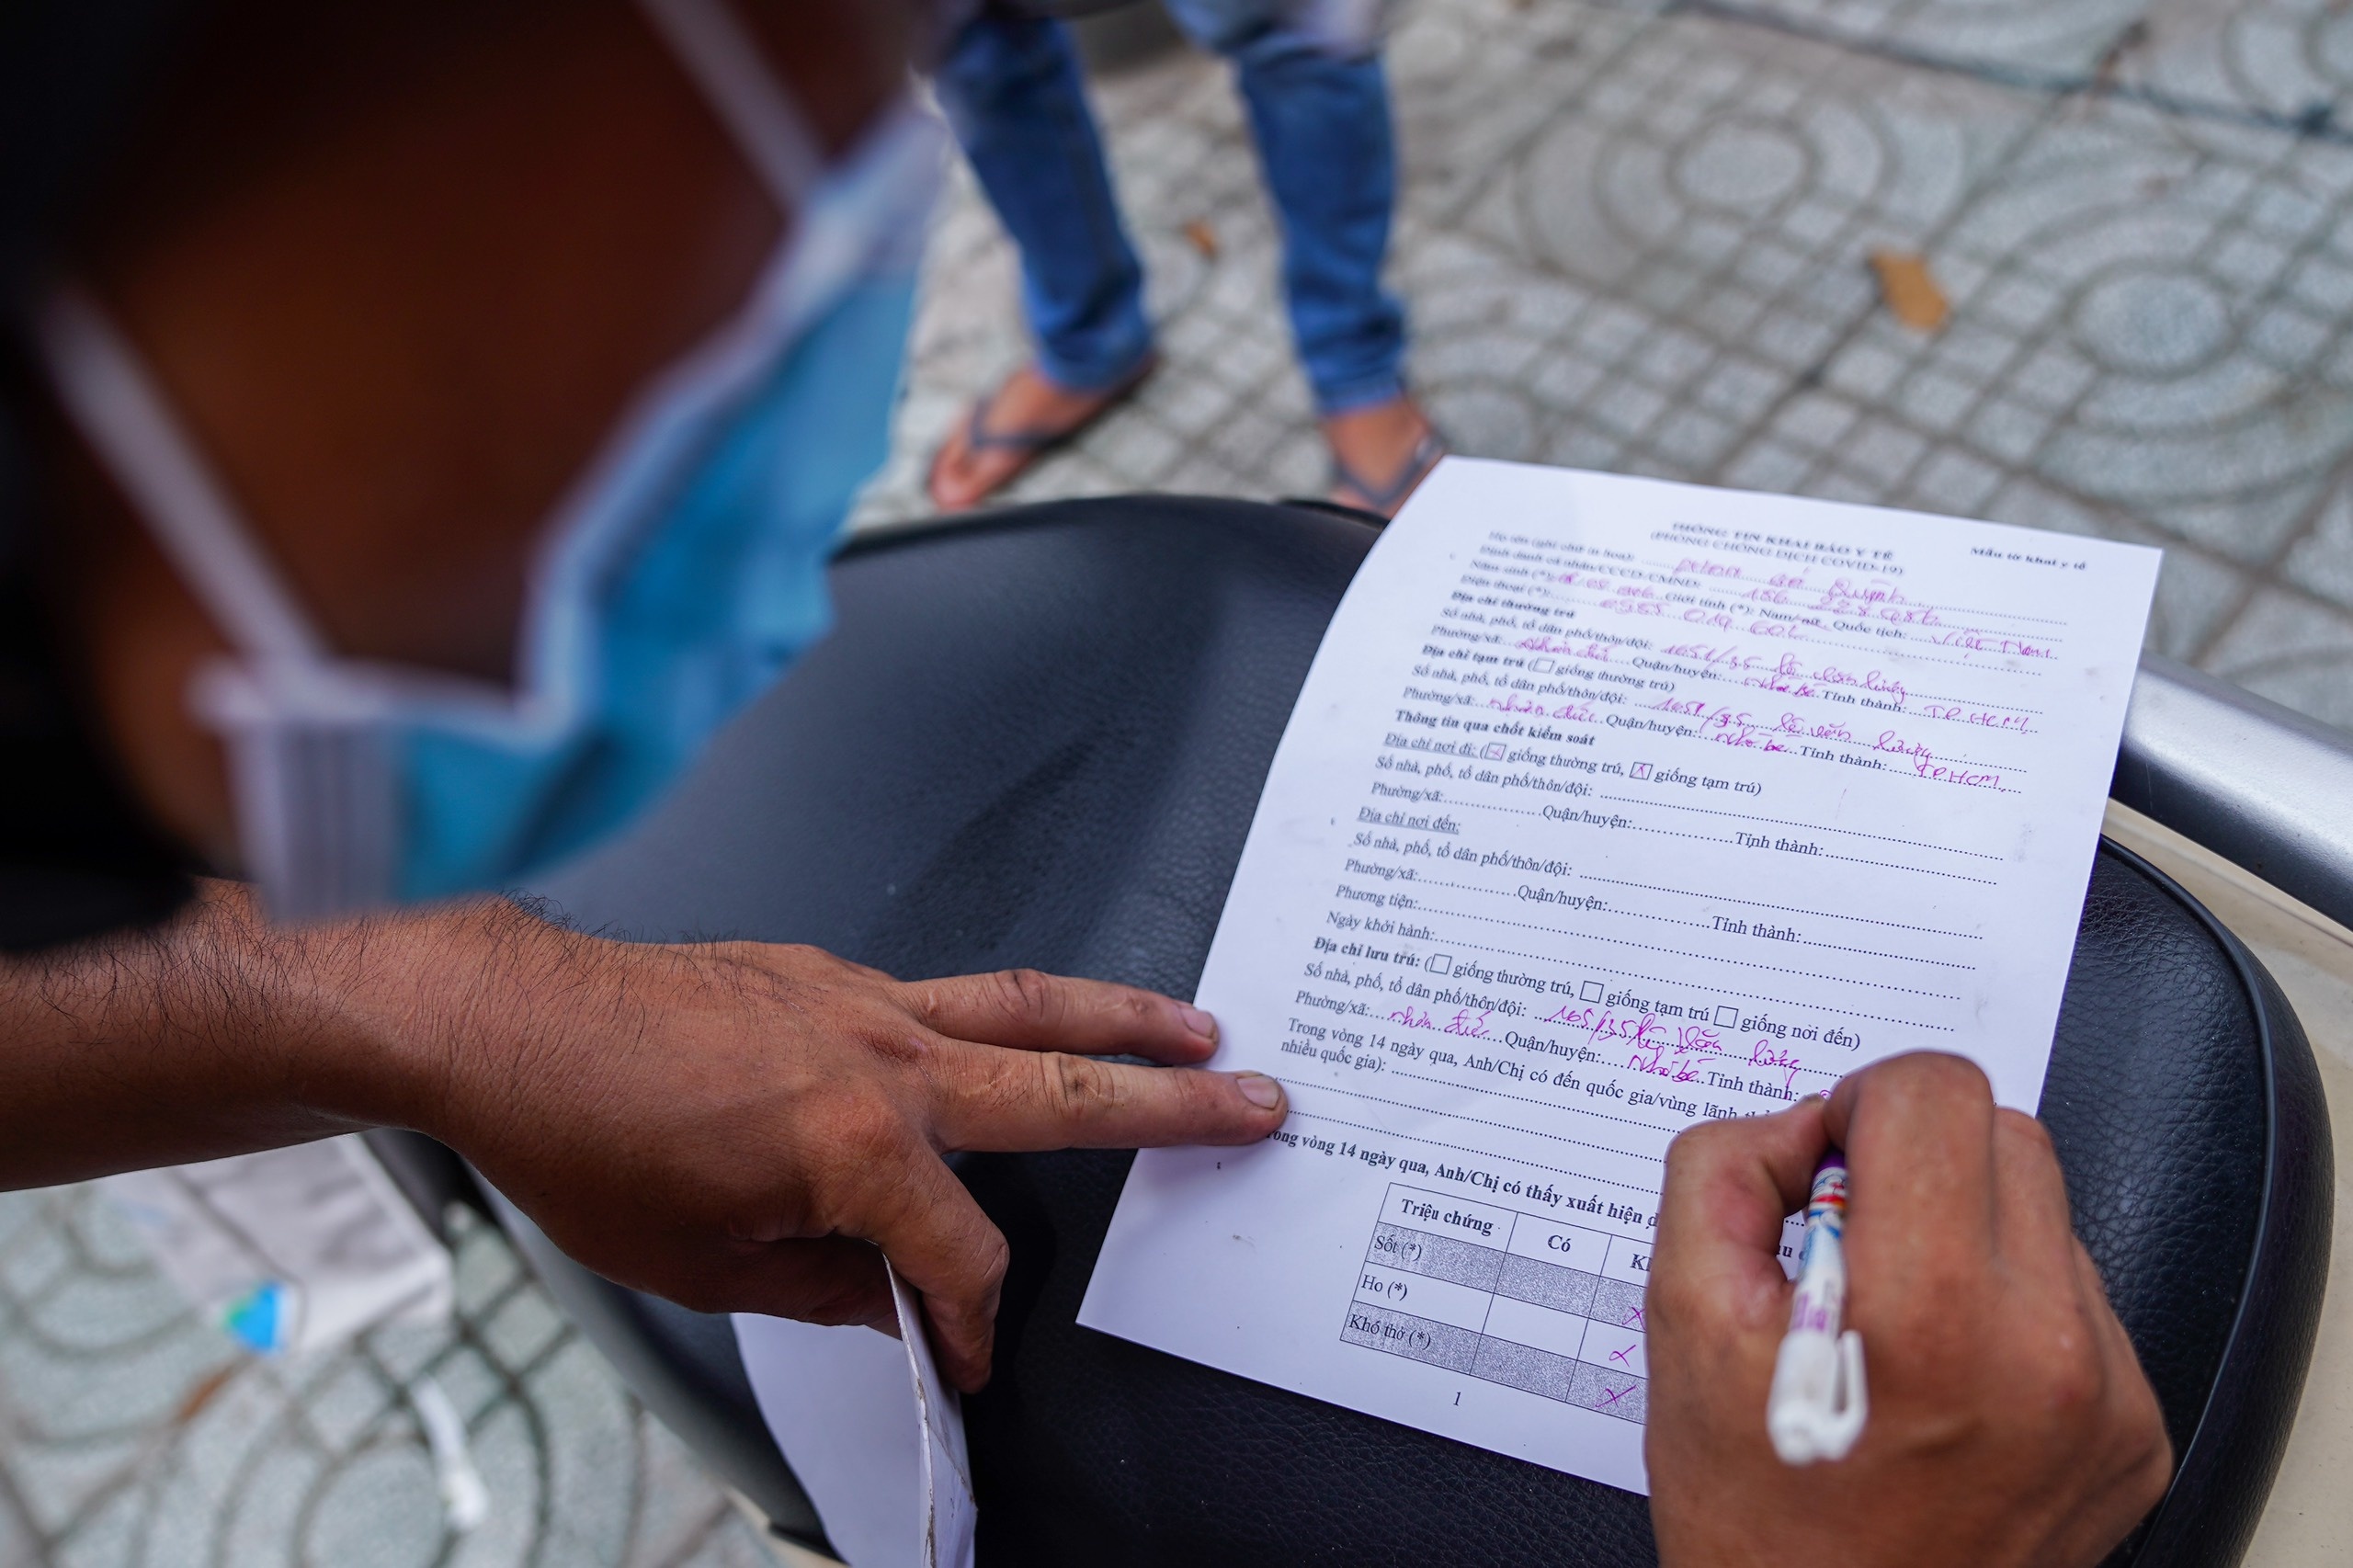 Mẫu tờ khai y tế
THÔNG TIN KHAI BÁO Y TẾ
(PHÒNG CHỐNG DỊCH COVID-19)
Họ tên (ghi chữ in hoa):
Định danh cá nhân/CCCD/CMND:
Năm sinh (*): Giới tính (*): Nam/nữ Quốc tịch: Việt Nam
Điện thoại (*):
Địa chỉ thường trú
Số nhà, phố, tổ dân phố/thôn/đội: 1051/35 lê văn lương
Phường/xã: Quận/huyện: Nhà bè Tỉnh thành: TP HCM
Địa chỉ tạm trú (☐ giống thường trú)
Số nhà, phố, tổ dân phố/thôn/đội: 1051/35 lê văn lương
Phường/xã: nhơn đức Quận/huyện: nhà bè Tỉnh thành: TPHCM
Thông tin qua chốt kiểm soát
Địa chỉ nơi đi: (☒ giống thường trú, ☒ giống tạm trú)
Số nhà, phố, tổ dân phố/thôn/đội:
Phường/xã: Quận/huyện: Tỉnh thành:
Địa chỉ nơi đến:
Số nhà, phố, tổ dân phố/thôn/đội:
Phường/xã: Quận/huyện: Tỉnh thành:
Phương tiện:
Ngày khởi hành:
Địa chỉ lưu trú: (☐ giống thường trú, ☐ giống tạm trú ☐ giống nơi đến)
Số nhà, phố, tổ dân phố/thôn/đội: lê văn lương
Phường/xã: nhơn đức Quận/huyện: Nhà bè Tỉnh thành:
Trong vòng 14 ngày qua, Anh/Chị có đến quốc gia/vùng lãnh
nhiều quốc gia):
vòng 14 ngày qua, Anh/Chị có thấy xuất hiện
Triệu chứng Có
Sốt (*) X
Ho (*) X
Khó thở (*) X
1